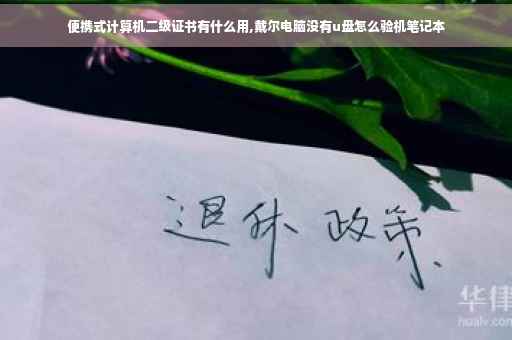 便携式计算机二级证书有什么用,戴尔电脑没有u盘怎么验机笔记本
退休 政策
华律
hualv.com